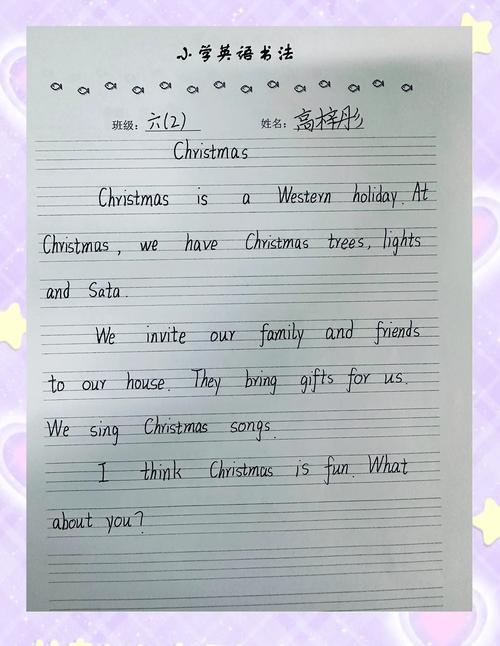 小学英语书法
班级：六(2) 姓名：高梓彤
Christmas
Christmas is a Western holiday. At
Christmas, we have Christmas trees, lights
and Sata.
We invite our family and friends
to our house. They bring gifts for us.
We sing Christmas songs.
I think Christmas is fun. What
about you?